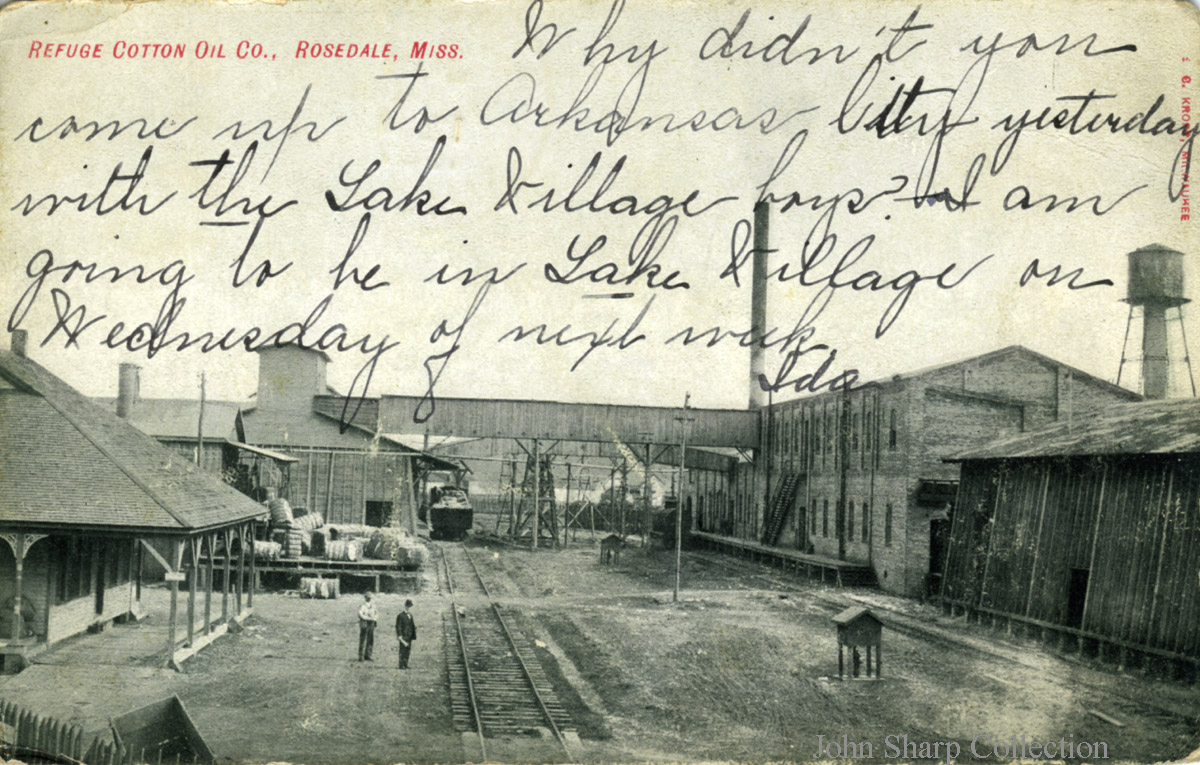 REFUGE COTTON OIL CO., ROSEDALE, MISS.
Why didn't you
come up to Arkansas City yesterday
with the Lake Village boys? I am
going to be in Lake Village on
Wednesday of next week
Ida
John Sharp Collection